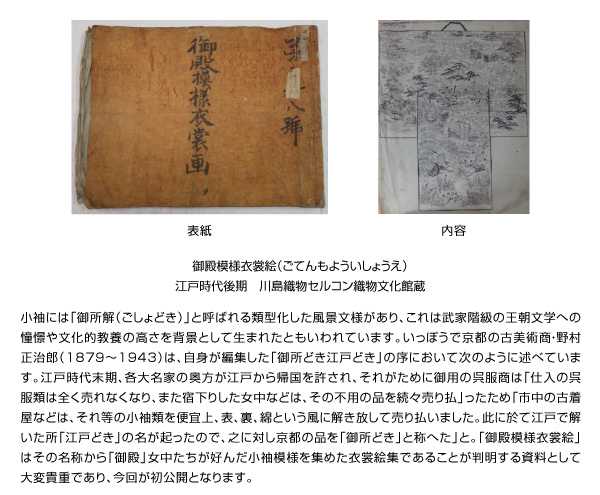 御殿模様衣裳画
第
八號
表紙
内容
御殿模様衣裳絵（ごてんもよういしょうえ）
江戸時代後期　川島織物セルコン織物文化館蔵
小袖には「御所解（ごしょどき）」と呼ばれる類型化した風景文様があり、これは武家階級の王朝文学への
憧憬や文化的教養の高さを背景として生まれたともいわれています。いっぽうで京都の古美術商・野村
正治郎（1879～1943）は、自身が編集した「御所どき江戸どき」の序において次のように述べていま
す。江戸時代末期、各大名家の奥方が江戸から帰国を許され、それがために御用の呉服商は「仕入の呉
服類は全く売れなくなり、また宿下りした女中などは、その不用の品を続々売り払」ったため「市中の古着
屋などは、それ等の小袖類を便宜上、表、裏、綿という風に解き放して売り払いました。此に於て江戸で解
いた所「江戸どき」の名が起ったので、之に対し京都の品を「御所どき」と称へた」と。「御殿模様衣裳絵」
はその名称から「御殿」女中たちが好んだ小袖模様を集めた衣裳絵集であることが判明する資料として
大変貴重であり、今回が初公開となります。